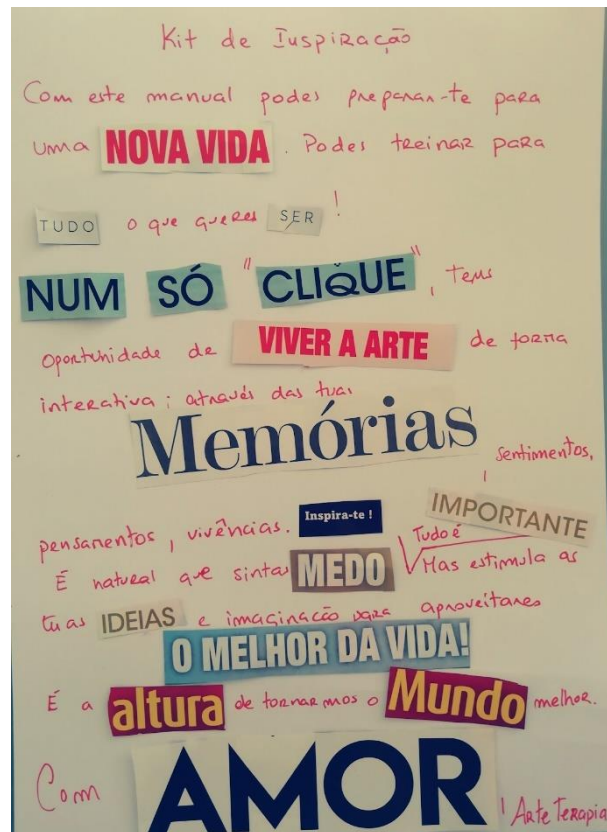 Kit de Inspiração
Com este manual podes preparar-te para
uma NOVA VIDA. Podes treinar para
TUDO o que queres SER!
NUM SÓ "CLIQUE", tens
oportunidade de VIVER A ARTE de forma
interativa; através das tuas
Memórias, sentimentos,
pensamentos, vivências. Inspira-te! Tudo é IMPORTANTE
É natural que sintas MEDO Mas estimula as
tuas IDEIAS e imaginação para aproveitares
O MELHOR DA VIDA!
É a altura de tornarmos o Mundo melhor.
Com AMOR! Arte Terapia